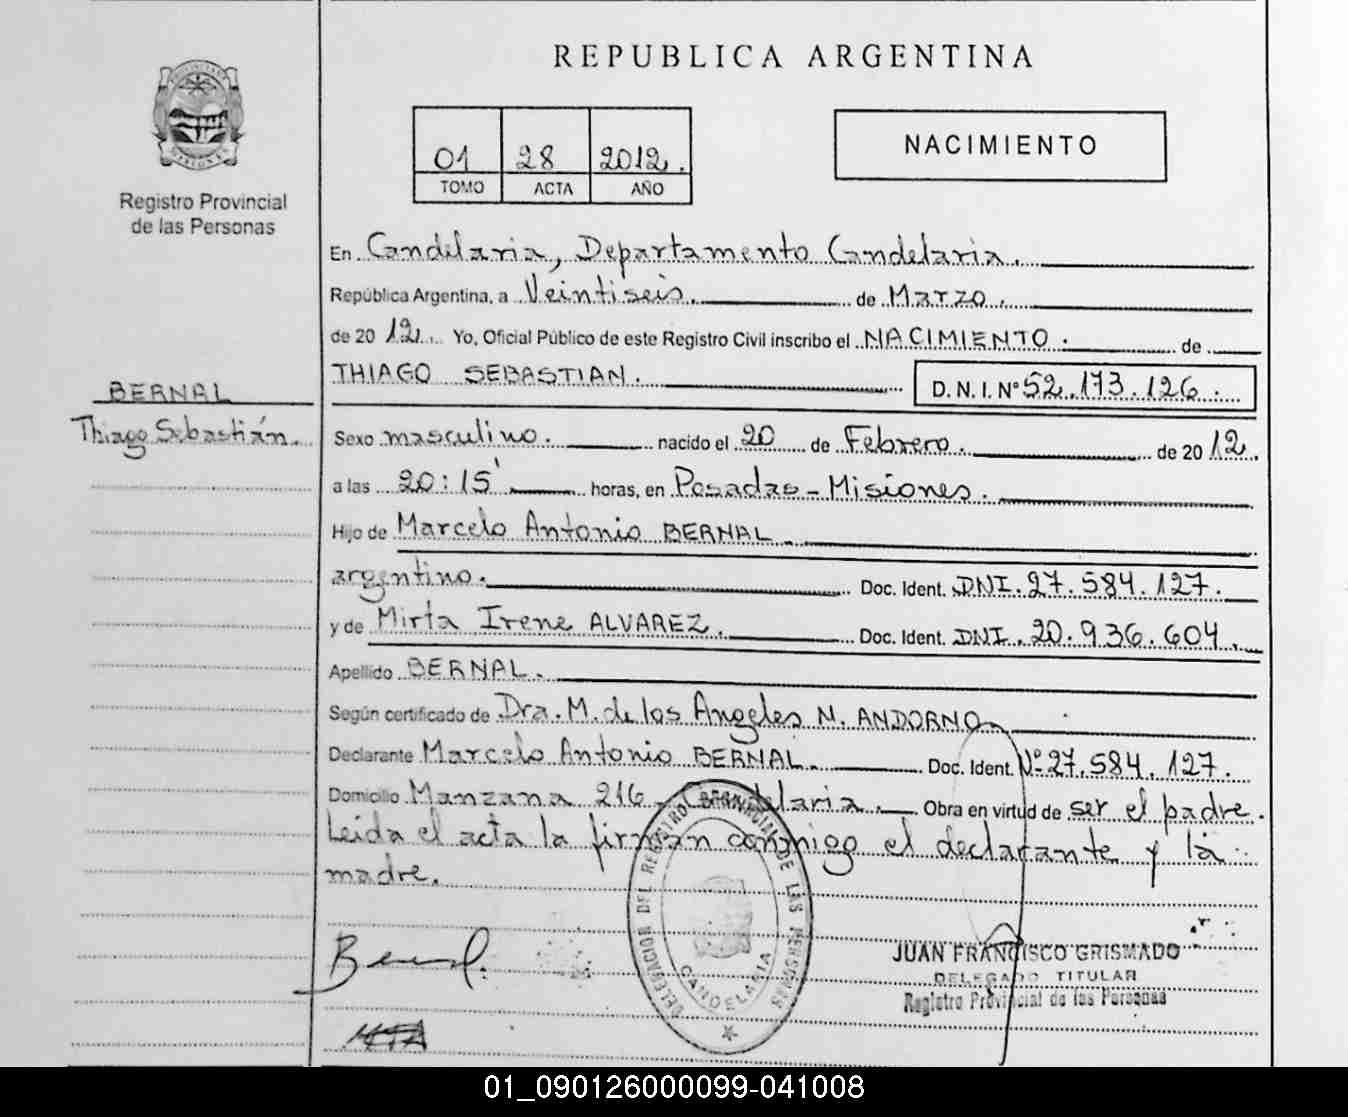 REPUBLICA ARGENTINA
01 28 2012.
TOMO ACTA AÑO
NACIMIENTO
Registro Provincial
de las Personas
En Candelaria, Departamento Candelaria.
República Argentina, a Veintiseis. de Marzo.
de 2012. Yo, Oficial Público de este Registro Civil inscribo el NACIMIENTO. de
THIAGO SEBASTIAN. D. N. I. Nº 52.173.126.
BERNAL
Thiago Sebastián.
Sexo masculino. nacido el 20 de Febrero. de 2012.
a las 20:15' horas, en Posadas - Misiones.
Hijo de Marcelo Antonio BERNAL
argentino. Doc. Ident. DNI. 27.584.127.
y de Mirta Irene ALVAREZ. Doc. Ident. DNI. 20.936.604.
Apellido BERNAL.
Según certificado de Dra. M. de los Angeles N. ANDORNO
Declarante Marcelo Antonio BERNAL. Doc. Ident. Nº 27.584.127.
Domicilio Manzana 216 - Candelaria. Obra en virtud de ser el padre.
Leida el acta la firman conmigo el declarante y la
madre.
DELEGACION DEL REGISTRO PROVINCIAL DE LAS PERSONAS
CANDELARIA
JUAN FRANCISCO GRISMADO
DELEGADO TITULAR
Registro Provincial de las Personas
01_090126000099-041008